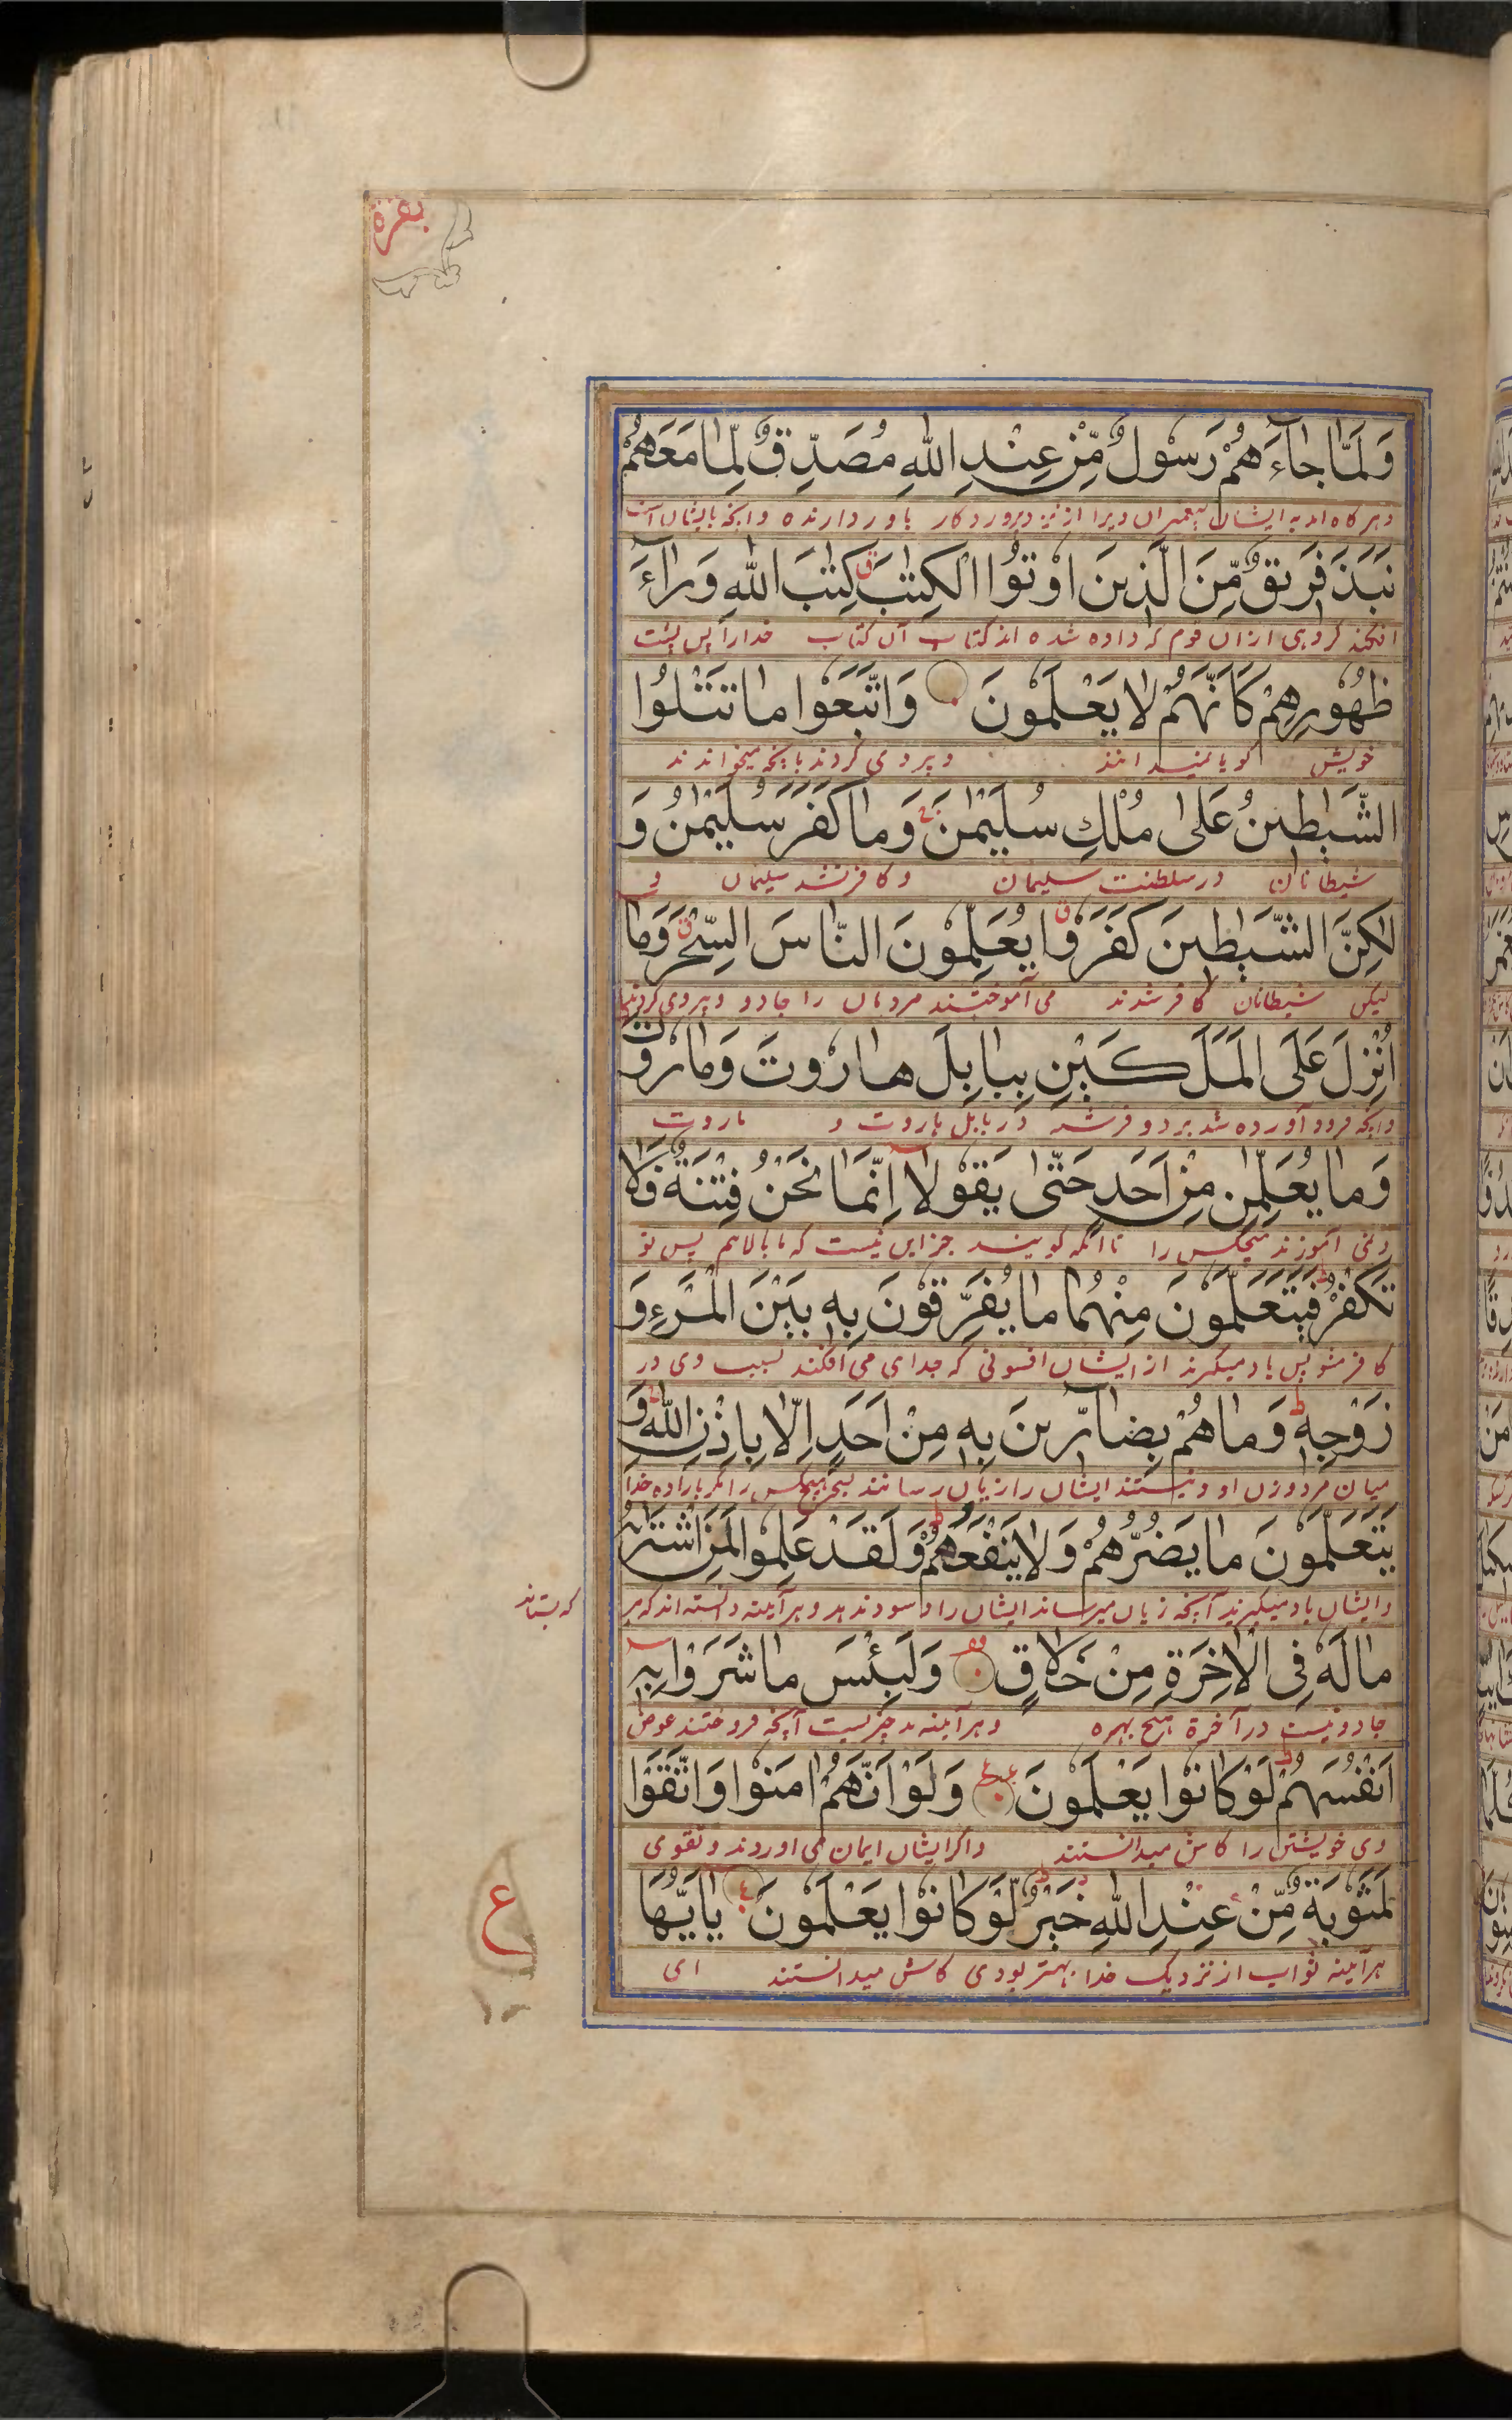 بقرة
وَلَمَّا جَاءَهُمْ رَسُولٌ مِّنْ عِنْدِ اللهِ مُصَدِّقٌ لِّمَا مَعَهُمْ
نَبَذَ فَرِيقٌ مِّنَ الَّذِينَ اُوتُوا الْكِتٰبَ ق كِتٰبَ اللهِ وَرَآءَ
افکند گروهی ازان قوم که داده شده اند کتاب آن کتاب خدارا پس پشت
ظُهُورِهِمْ كَاَنَّهُمْ لَا يَعْلَمُونَ وَاتَّبَعُوا مَا تَتْلُوا
خویش گویا نمیدانند و پیروی کردند بانچه میخواندند
الشَّيٰطِينُ عَلٰى مُلْكِ سُلَيْمٰنَ ج وَمَا كَفَرَ سُلَيْمٰنُ وَ
شیطانان در سلطنت سلیمان و کافر نشد سلیمان و
لٰكِنَّ الشَّيٰطِينَ كَفَرُوا ق يُعَلِّمُونَ النَّاسَ السِّحْرَ ق وَمَا
لیکن شیطانان کافر شدند می آموختند مردمان را جادو و پیروی کردند
اُنْزِلَ عَلَى الْمَلَكَيْنِ بِبَابِلَ هَارُوتَ وَمَارُوتَ
وانچه فرود آورده شد بر دو فرشته در بابل هاروت و ماروت
وَمَا يُعَلِّمٰنِ مِنْ اَحَدٍ حَتّٰى يَقُولَا اِنَّمَا نَحْنُ فِتْنَةٌ فَلَا
ونمی آموزند هیچکس را تا آنکه گویند جز این نیست که ما بلاایم پس تو
تَكْفُرْ ط فَيَتَعَلَّمُونَ مِنْهُمَا مَا يُفَرِّقُونَ بِهٖ بَيْنَ الْمَرْءِ وَ
کافر مشو پس یاد میگیرند از ایشان افسونی که جدای می افکند بسبب وی در
زَوْجِهٖ ط وَمَا هُمْ بِضَآرِّينَ بِهٖ مِنْ اَحَدٍ اِلَّا بِاِذْنِ اللهِ ط وَ
میان مرد وزن او و نیستند ایشان زیان رسانند بسحر هیچکس را مگر باراده خدا
يَتَعَلَّمُونَ مَا يَضُرُّهُمْ وَلَا يَنْفَعُهُمْ ط وَلَقَدْ عَلِمُوا لَمَنِ اشْتَرٰىهُ
وایشان یاد میگیرند آنچه زیان میرساند ایشان را و سود ندهد و هر آینه دانسته اند که هر
که بستاند
مَا لَهٗ فِى الْاٰخِرَةِ مِنْ خَلَاقٍ وَلَبِئْسَ مَا شَرَوْا بِهٖ
جادو نیست در آخرة هیچ بهره و هر آینه بد چیزیست آنچه فروختند عوض
اَنْفُسَهُمْ ط لَوْ كَانُوا يَعْلَمُونَ وَلَوْ اَنَّهُمْ اٰمَنُوا وَاتَّقَوْا
وی خویشتن را کاش میدانستند واگر ایشان ایمان می آوردند و تقوی
لَمَثُوبَةٌ مِّنْ عِنْدِ اللهِ خَيْرٌ ط لَّوْ كَانُوا يَعْلَمُونَ يٰاَيُّهَا
هر آینه ثواب از نزدیک خدا بهتر بودی کاش میدانستند ای
ع